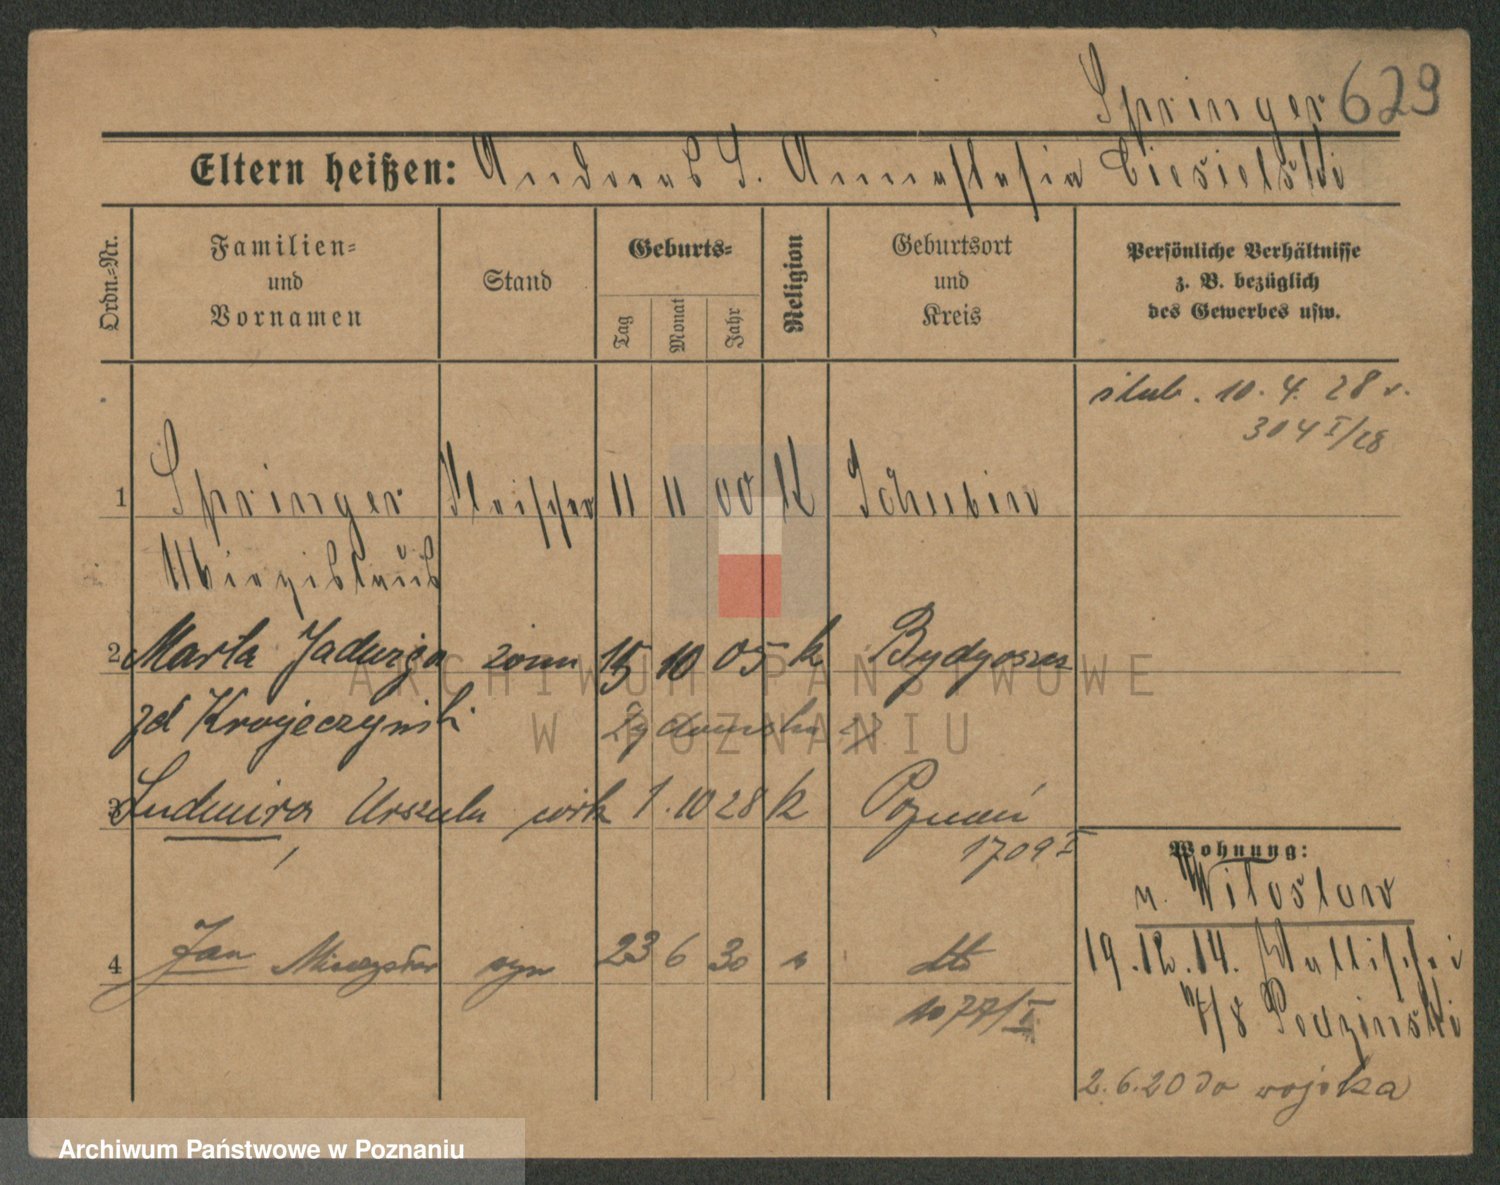 Springer 629
Eltern heißen: Andreas S. Annastasia Ciesielski
Ordn.-Nr.
Familien- und Vornamen
Stand
Geburts-
Tag
Monat
Jahr
Religion
Geburtsort und Kreis
Persönliche Verhältnisse
z. B. bezüglich
des Gewerbes usw.
ślub. 10. 4. 28 r.
304 I/28
1 Springer Fleischer 11 11 00 K Schubin
Miezislaus
2 Marta Jadwiga żona 15 10 05 k Bydgoszcz
zd
3 Ludmira Urszula córk 1. 10 28 k Poznań
1709 I
Wohnung:
n. Witoslaw
4 Jan Mieczysław syn 23 6 30 dto
1077/I
19.12.14. Wallischei
7/8
2.6.20 do wojska
ARCHIWUM PAŃSTWOWE
W POZNANIU
Archiwum Państwowe w Poznaniu